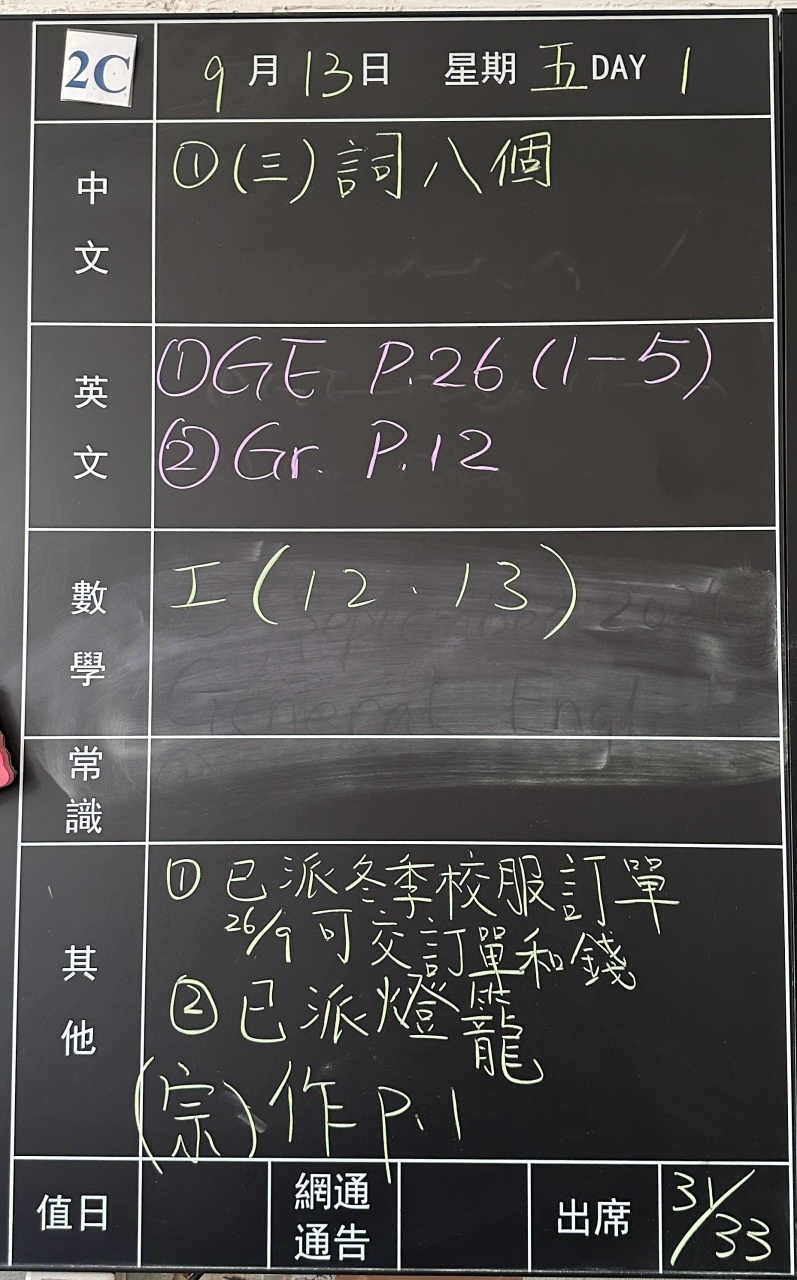 2C
9月13日 星期五DAY 1
中文
①(三)詞八個
英文
①GE P.26(1-5)
②Gr. P.12
數學
工(12.13)
September 202
General English
常識
其他
①已派冬季校服訂單
26/9可交訂單和錢
②已派燈籠
(宗)作P.1
值日
網通通告
出席
31/33